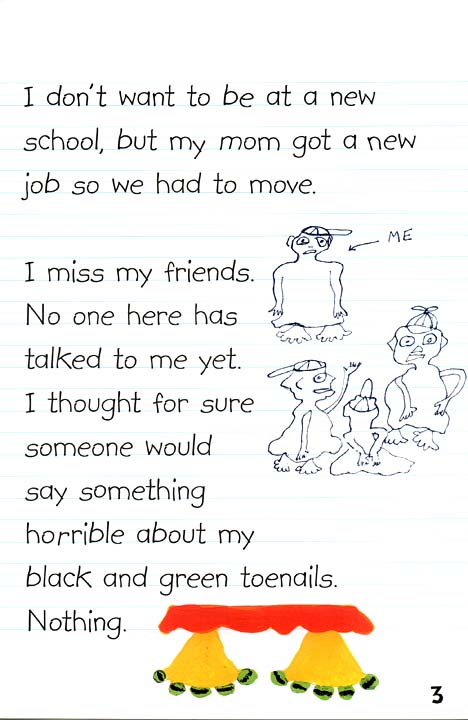 I don't want to be at a new
school, but my mom got a new
job so we had to move.
ME
I miss my friends.
No one here has
talked to me yet.
I thought for sure
someone would
say something
horrible about my
black and green toenails.
Nothing.
3